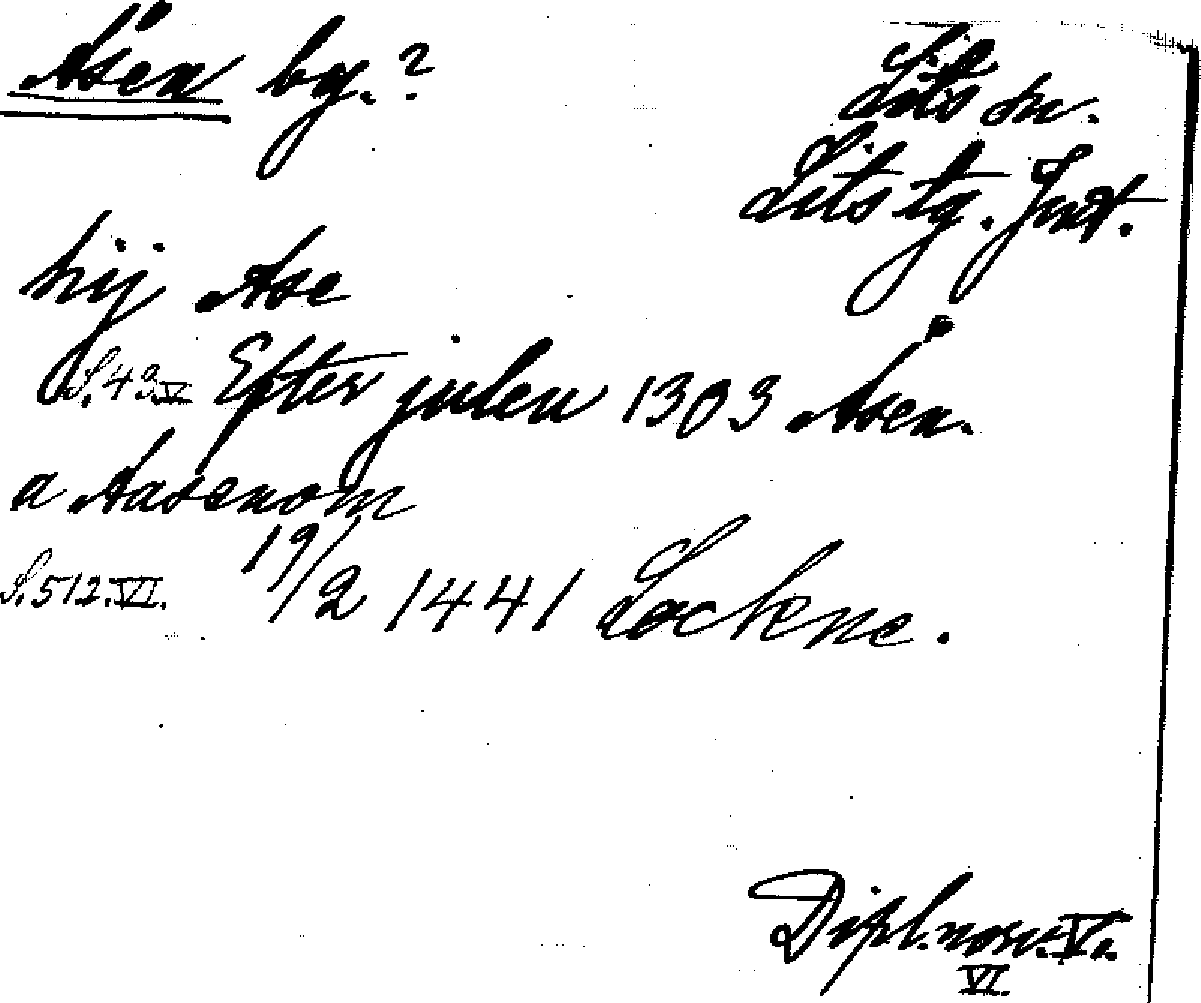 Åsen by.?
Lits sn.
Lits tg. Jmt.
hij Ase
S. 43 V Efter julen 1303 Åsen.
a Aasenom
S. 512. VI. 19/2 1441 Lockne.
Dipl. norv. V.
VI.